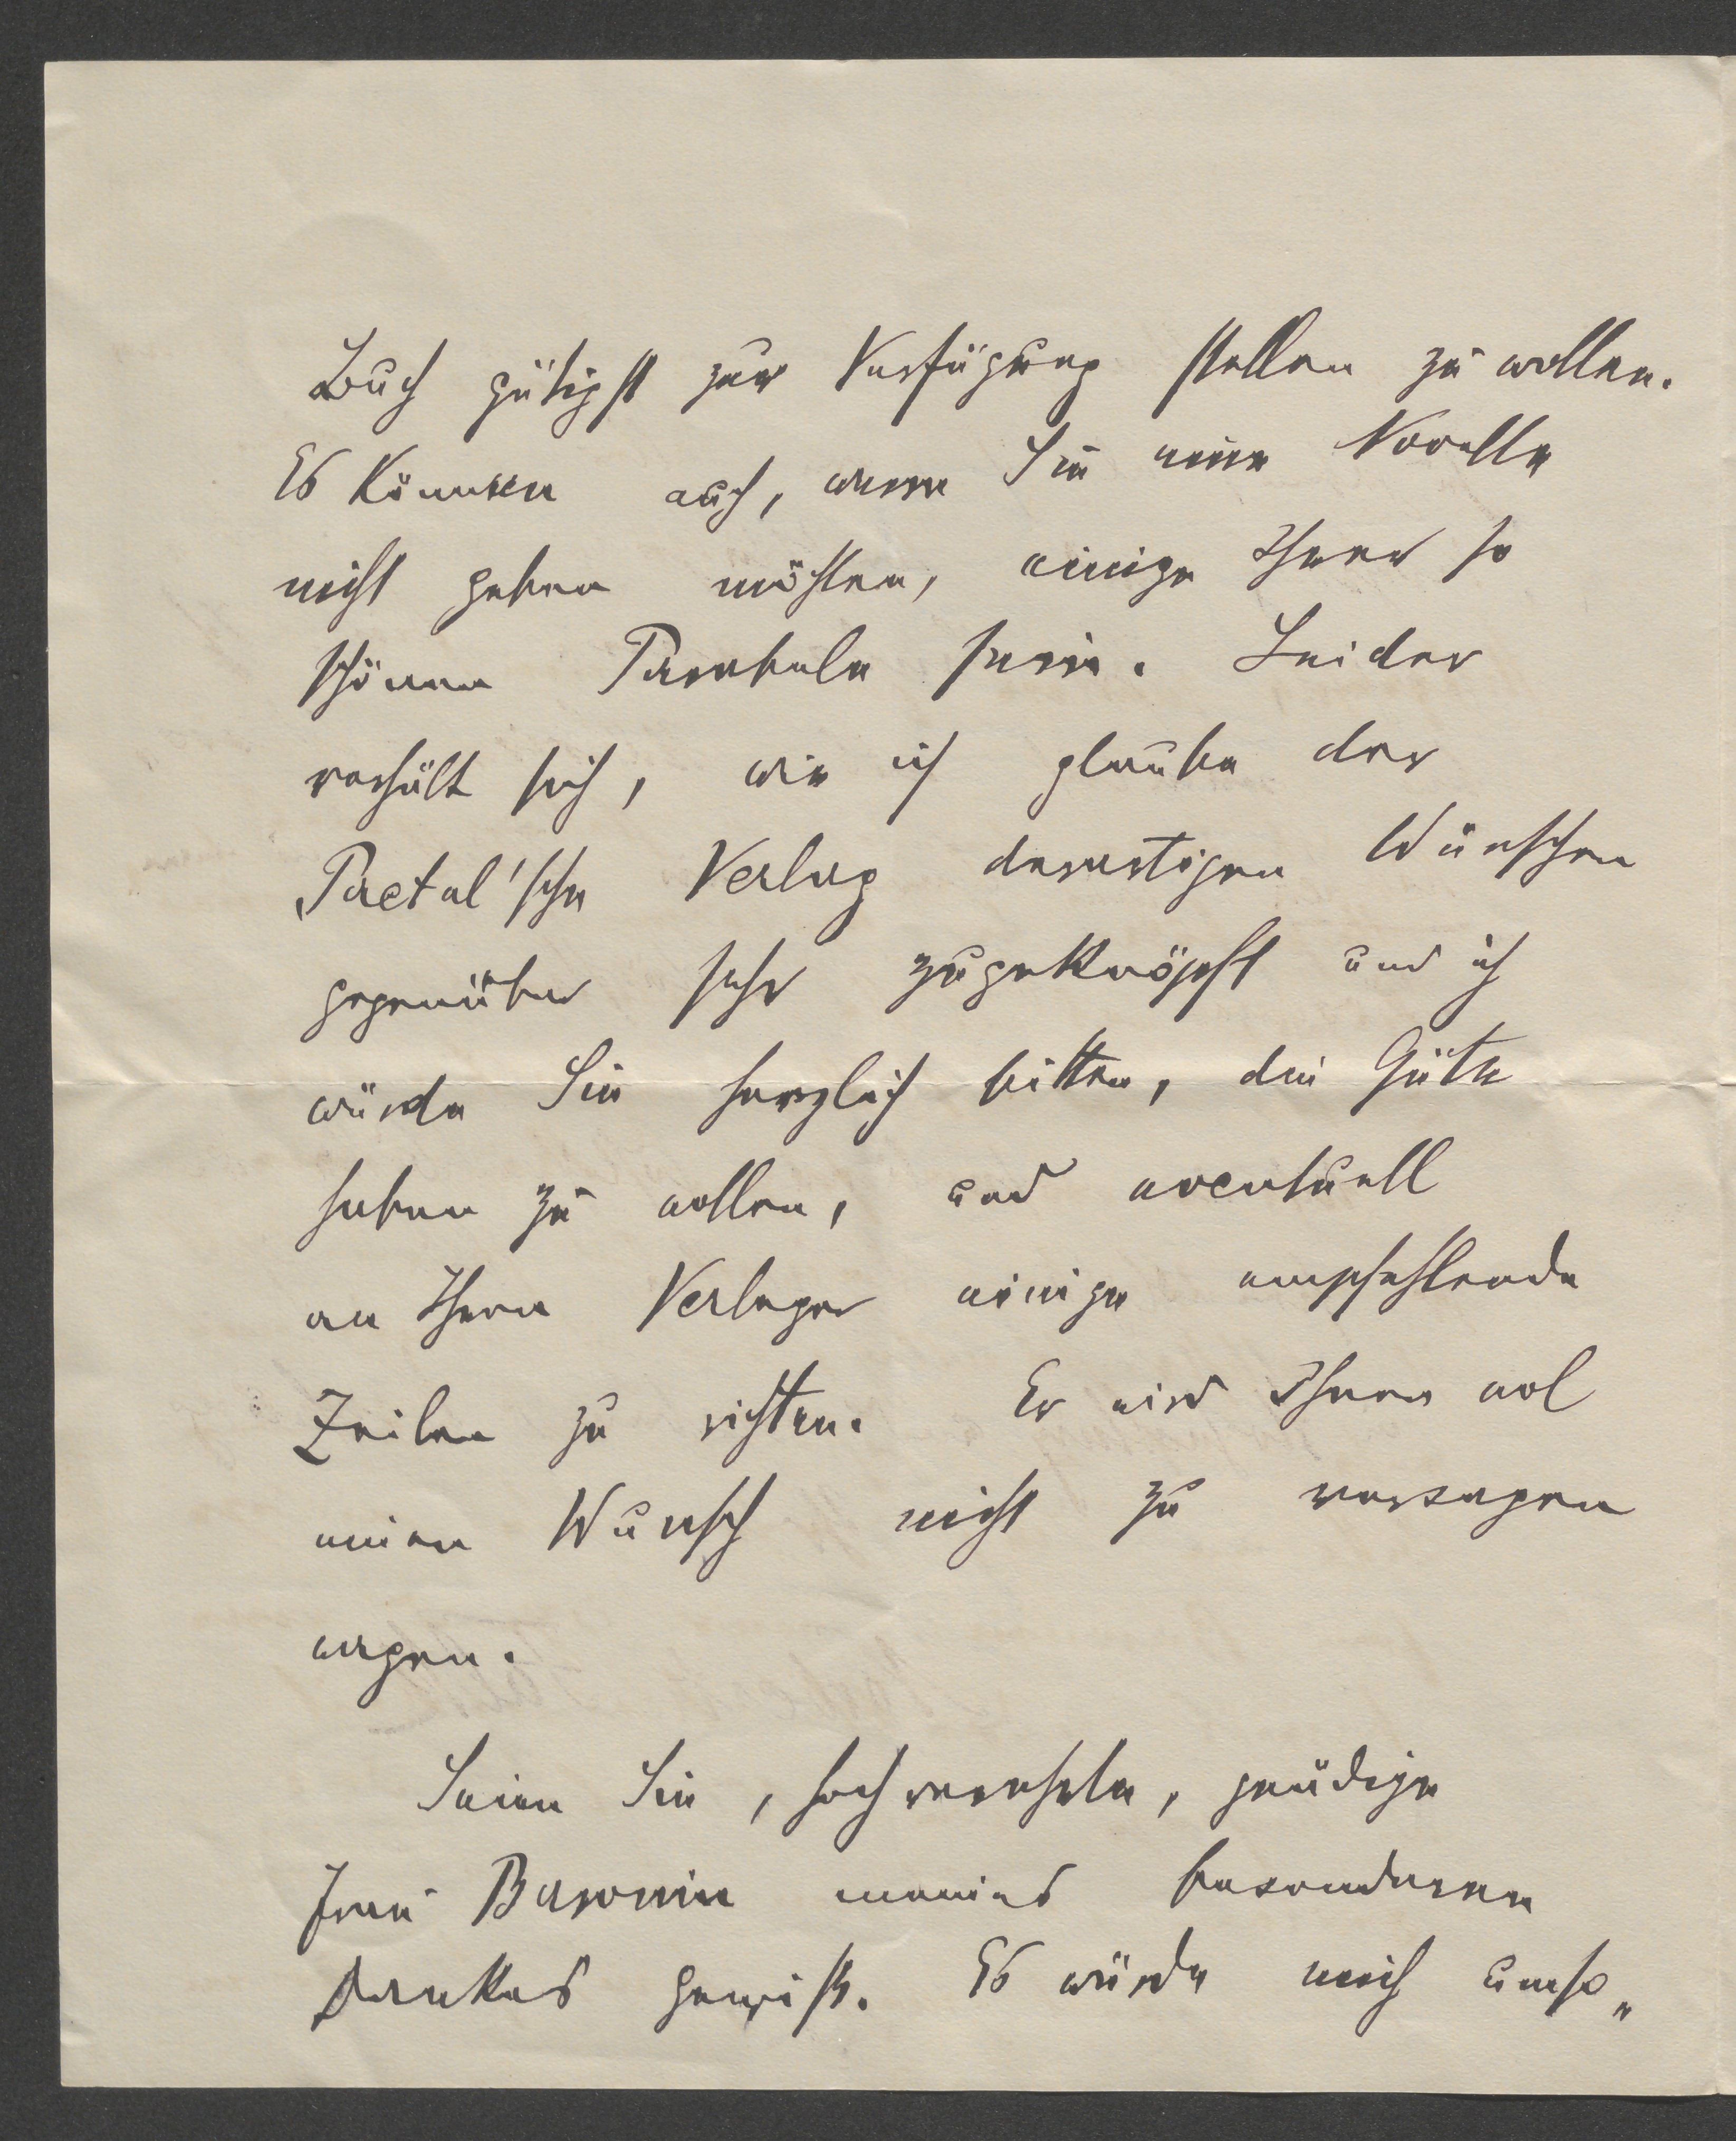 Buch gütigst zur Verfügung stellen zu wollen.
Es können auch, wenn Sie eine Novelle
nicht geben möchten, einige Ihrer so
schönen Parabeln sein. Leider
verhält sich, wie ich glaube der
Paetel'sche Verlag derartigen Wünschen
gegenüber sehr zugeknöpft und ich
würde Sie herzlich bitten, die Güte
haben zu wollen, und eventuell
an Ihren Verleger einige empfehlende
Zeilen zu richten. Er wird Ihnen wol
einen Wunsch nicht zu versagen
wagen.
Seien Sie, hochverehrte, gnädige
Frau Baronin meines besonderen
Dankes gewiß. Es würde mich umso„